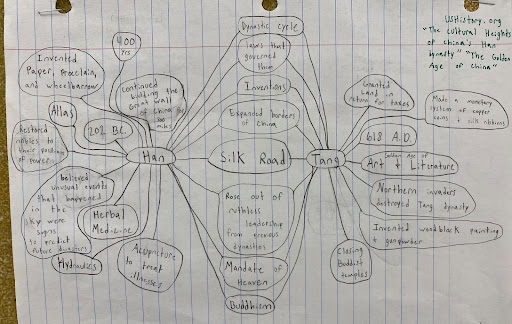 USHistory.org
"The Cultural Heights
of China's Han
Dynasty" "The Golden
Age of China"
Dynastic cycle
laws that
governed
them
Inventions
Expanded borders
of China
Silk Road
Rose out of
ruthless
leadership
from previous
dynasties
Mandate of
Heaven
Buddhism
Han
400
yrs
Invented
Paper, Proclain,
and wheelbarrow
continued
building the
Great wall
of China for
miles
Atlas
202 B.C.
Restored
nobles to
their positions
of power
believed
unusual events
that happened
in the
sky were
signs
to predict
future disasters
Herbal
Medicine
Hydraulics
Acupuncture
to treat
illnesses
Tang
Granted
Land in
return for taxes
Made a monetary
system of copper
coins + silk ribbons
618 A.D.
Golden Age of
Art + Literature
Northern invaders
destroyed Tang dynasty
Invented woodblock painting
+ gunpowder
Closing
Buddist
temples